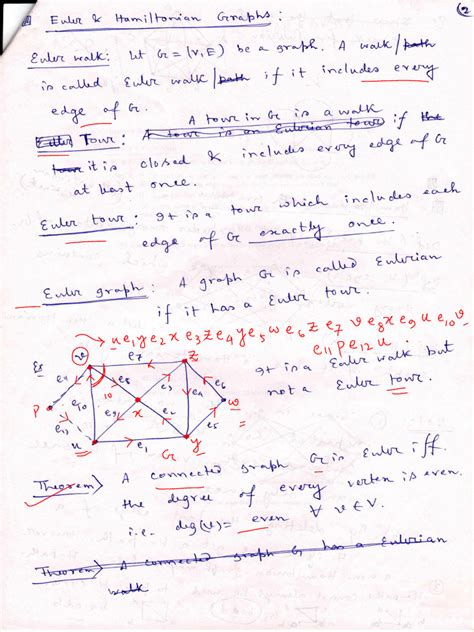 2
Euler & Hamiltonian Graphs :
Euler walk : let G = (V, E) be a graph. A walk/path
is called Euler walk/path if it includes every
edge of G.
A tour in G is a walk
Euler Tour : A tour is an Eulerian tour if the
tour it is closed & includes every edge of G
at least once.
Euler tour : It is a tour which includes each
edge of G exactly once.
Euler graph : A graph G is called Eulerian
if it has a Euler tour.
→ u e1 y e2 x e3 z e4 y e5 w e6 z e7 v e8 x e9 u e10 v
e11 p e12 u.
Ex
It is a Euler walk but
not a Euler tour.
v e7 z
e11 e8 e3 e6
p e10 10 x e4 w
e12 e9 e2 e5
u e1 G y
Theorem) A connected graph G is Euler iff
the degree of every vertex is even.
i.e. deg(v) = even ∀ v ∈ V.
Theorem) A connected graph G has a Eulerian
walk